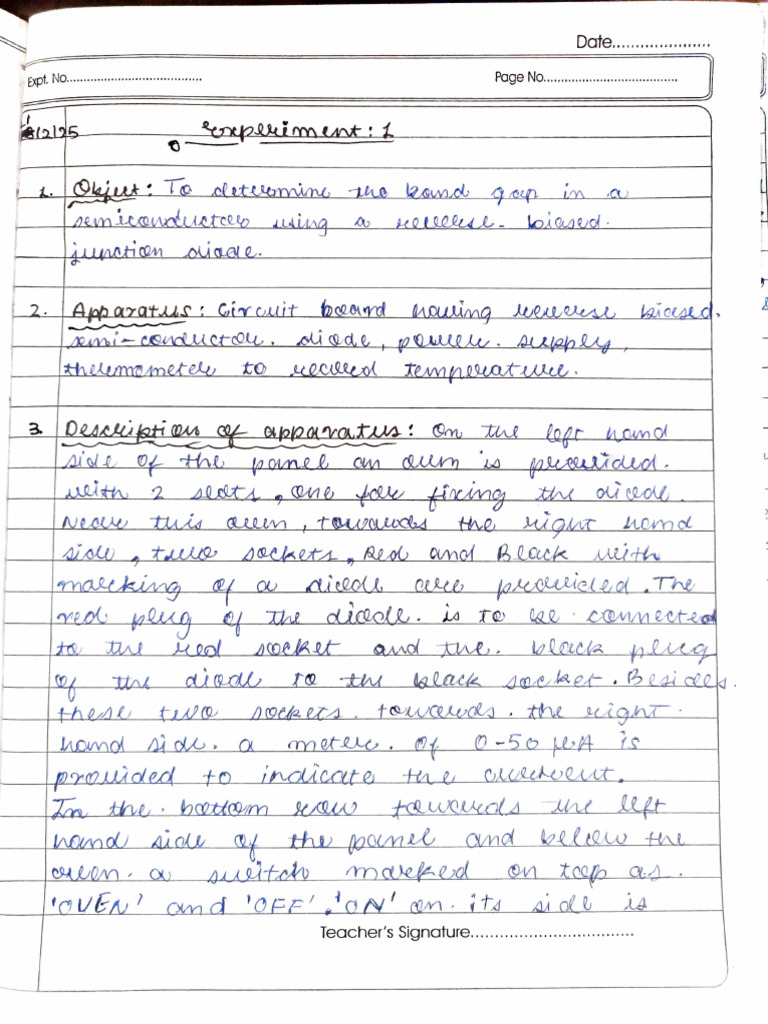 Date.....................
Expt. No.....................................
Page No.....................................
8/2/25
Experiment: 1
1. Object: To determine the band gap in a
semiconductor using a reverse-biased.
junction diode.
2. Apparatus: Circuit board having reverse biased.
semi-conductor. diode, power. supply,
thermometer to record temperature.
3. Description of apparatus: On the left hand
side of the panel an oven is provided.
with 2 seats, one for fixing the diode.
Near this oven, towards the right hand
side, two sockets, Red and Black with
marking of a diode are provided. The
red plug of the diode. is to be connected
to the red socket and the. black plug
of the diode to the black socket. Besides.
these two sockets. towards. the right.
hand side. a meter. of 0-50 μA is
provided to indicate the current.
In the. bottom row towards the left
hand side of the panel and below the
oven. a switch marked on top as.
'OVEN' and 'OFF', 'ON' on. its side is
Teacher's Signature..................................